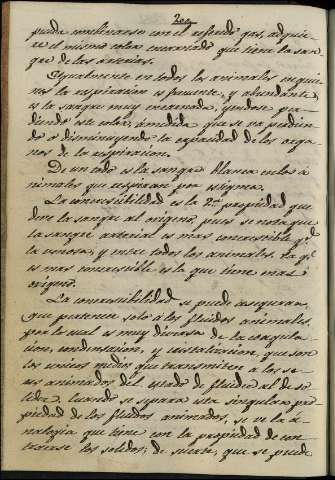 200
pueda combinarse con el referido gas, adquie-
re el mismo color encarnado que tiene la san-
gre de las arterias.
Igualmente en todos los animales en quie-
nes la respiracion es frecuente, y abundante,
es la sangre muy encarnada, yendose per-
diendo este color, á medida que se va perdien-
do ó disminuyendo la capacidad de los orga-
nos de la respiracion.
De un todo es la sangre blanca en los á-
nimales que respiran por estigma.
La concrescibilidad es la 2ª propiedad que
debe la sangre al origeno, pues se nota que
la sangre arterial es mas concrescible qᵉ
la venosa, y entre todos los animales, la qᵉ
es mas concrescible es la que tiene mas
origeno.
La concrescibilidad se puede asegurar
que pertenece solo á los fluidos animales
por lo cual es muy diversa de la coagula-
cion, condensacion, y cristalizacion, que son
los unicos medios que transmiten á los se-
res animados del estado de fluidéz al de so-
lidez. Cuando se separa esta singular pro-
piedad de los fluidos animados, se ve la á-
nalogia que tiene con la propiedad de con-
traerse los solidos; de suerte, que se puede